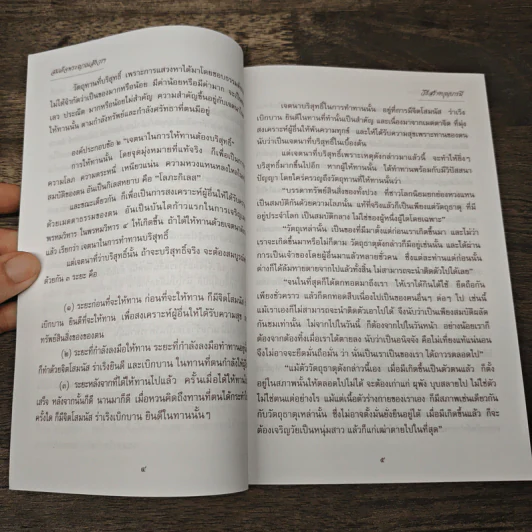 สมเด็จพระญาณสังวร
วัตถุทานที่บริสุทธิ์ เพราะการแสวงหาได้มาโดยชอบธรรม
ไม่ได้จำกัดว่าเป็นของมากหรือน้อย มีค่าน้อยหรือมีค่ามาก จะเป็น
เลว ประณีต มากหรือน้อยไม่สำคัญ ความสำคัญขึ้นอยู่กับเจตนา
ให้ทานนั้น ตามกำลังทรัพย์และกำลังศรัทธาที่ตนมีอยู่
องค์ประกอบข้อ ๒ "เจตนาในการให้ทานต้องบริสุทธิ์"
การให้ทานนั้น โดยจุดมุ่งหมายที่แท้จริง ก็เพื่อเป็น
ความโลภ ความตระหนี่ เหนียวแน่น ความหวงแหนหลงใหล
สมบัติของตน อันเป็นกิเลสหยาบ คือ "โลภะกิเลส"
และขณะเดียวกัน ก็เพื่อเป็นการสงเคราะห์ผู้อื่นให้ได้รับ
ด้วยเมตตาธรรมของตน อันเป็นบันไดก้าวแรกในการเจริญ
พรหมวิหาร ในพรหมวิหาร ๔ ให้เกิดขึ้น ถ้าได้ให้ทานด้วยเจตนา
แล้ว เรียกว่า เจตนาในการทำทานบริสุทธิ์
แต่เจตนาที่ว่าบริสุทธิ์นั้น ถ้าจะบริสุทธิ์จริง จะต้องสมบูรณ์
ด้วยกัน ๓ ระยะ คือ
(๑) ระยะก่อนที่จะให้ทาน ก่อนที่จะให้ทาน ก็มีจิตโสมนัส
เบิกบาน ยินดีที่จะให้ทาน เพื่อสงเคราะห์ผู้อื่นให้ได้รับความสุข
ทรัพย์สินสิ่งของของตน
(๒) ระยะที่กำลังลงมือให้ทาน ระยะที่กำลังลงมือทำทาน
ก็ทำด้วยจิตโสมนัส ร่าเริงยินดี และเบิกบาน ในทานที่ตนกำลังให้
(๓) ระยะหลังจากที่ได้ให้ทานไปแล้ว ครั้นเมื่อได้ให้ทาน
เสร็จ หลังจากนั้นก็ดี นานมาก็ดี เมื่อหวนคิดถึงทานที่ตนได้กระทำ
ครั้งใด ก็มีจิตโสมนัส ร่าเริงเบิกบาน ยินดีในทานนั้น ๆ
๔
วิธีสร้างบุญบารมี
เจตนาบริสุทธิ์ในการทำทานนั้น อยู่ที่การมีจิตโสมนัส ร่าเริง
เบิกบาน ยินดีในทานที่ทำนั้นเป็นสำคัญ และเนื่องมาจากเมตตาจิต ที่มุ่ง
สงเคราะห์ผู้อื่นให้พ้นความทุกข์ และให้ได้รับความสุขเพราะทานของตน
นับว่าเป็นเจตนาที่บริสุทธิ์ในเบื้องต้น
แต่เจตนาที่บริสุทธิ์เพราะเหตุดังกล่าวมาแล้วนี้ จะทำให้ยิ่งๆ
บริสุทธิ์มากขึ้นไปอีก หากผู้ให้ทานนั้น ได้ทำทานพร้อมกับมีวิปัสสนา
ปัญญา โดยใคร่ครวญถึงวัตถุทานที่ให้ทานนั้นว่า
"บรรดาทรัพย์สินสิ่งของทั้งปวง ที่ชาวโลกนิยมยกย่องหวงแหน
เป็นสมบัติกันด้วยความโลภนั้น แท้ที่จริงแล้วก็เป็นเพียงวัตถุธาตุ ที่มี
อยู่ประจำโลก เป็นสมบัติกลาง ไม่ใช่ของผู้หนึ่งผู้ใดโดยเฉพาะ"
"วัตถุเหล่านั้น เป็นของที่มีมาตั้งแต่ก่อนเราเกิดขึ้นมา และไม่ว่า
เราจะเกิดขึ้นมาหรือไม่ก็ตาม วัตถุธาตุดังกล่าวก็มีอยู่เช่นนั้น และได้ผ่าน
การเป็นเจ้าของโดยผู้อื่นมาแล้วหลายชั่วคน ซึ่งแต่ละท่านแต่ก่อนนั้น
ต่างก็ได้ล้มหายตายจากไปแล้วทั้งสิ้น ไม่สามารถจะนำติดตัวไปได้เลย"
"จนในที่สุดก็ได้ตกทอดมาถึงเรา ให้เราได้กินได้ใช้ ยึดถือกัน
เพียงชั่วคราว แล้วก็ตกทอดสืบเนื่องไปเป็นของคนอื่นๆ ต่อๆ ไป เช่นนี้
แม้เราเองก็ไม่สามารถจะนำติดตัวเอาไปได้ จึงนับว่าเป็นเพียงสมบัติผลัด
กันชมเท่านั้น ไม่จากไปในวันนี้ ก็ต้องจากไปในวันหน้า อย่างน้อยเราก็
ต้องจากต้องทิ้งเมื่อเราได้ตายลง นับว่าเป็นอนิจจัง คือไม่เที่ยงแท้แน่นอน
จึงไม่อาจจะยึดมั่นถือมั่น ว่า นั่นเป็นเราเป็นของเรา ได้ถาวรตลอดไป"
"แม้ตัววัตถุธาตุดังกล่าวนี้เอง เมื่อมีเกิดขึ้นเป็นตัวตนแล้ว ก็ตั้ง
อยู่ในสภาพนั้นให้ตลอดไปไม่ได้ จะต้องเก่าแก่ ผุพัง บุบสลายไป ไม่ใช่ตัว
ไม่ใช่ตนแต่อย่างไร แม้แต่เนื้อตัวร่างกายของเราเอง ก็มีสภาพเช่นเดียวกัน
กับวัตถุธาตุเหล่านั้น ซึ่งไม่อาจตั้งมั่นยั่งยืนอยู่ได้ เมื่อมีเกิดขึ้นแล้ว ก็จะ
ต้องเจริญวัยเป็นหนุ่มสาว แล้วก็แก่เฒ่าตายไปในที่สุด"
๕